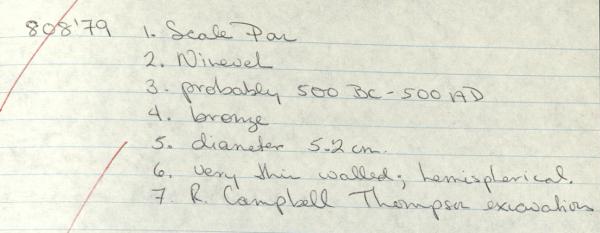 808'79 1. Scale Pan
2. Nineveh
3. probably 500 BC - 500 AD
4. bronze
5. diameter 5.2 cm.
6. very thin walled; hemispherical.
7. R. Campbell Thompson excavations